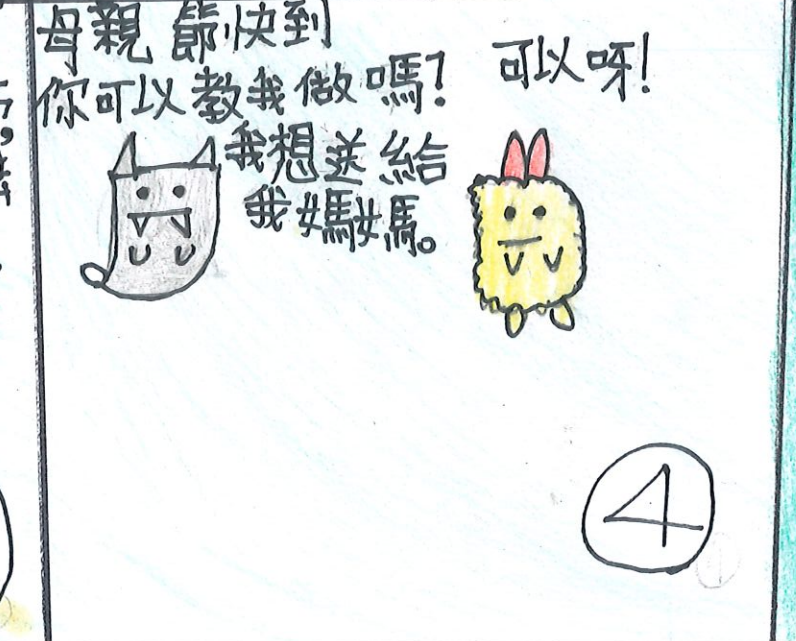 母親節快到
你可以教我做嗎?
我想送給
我媽媽。
可以呀!
4